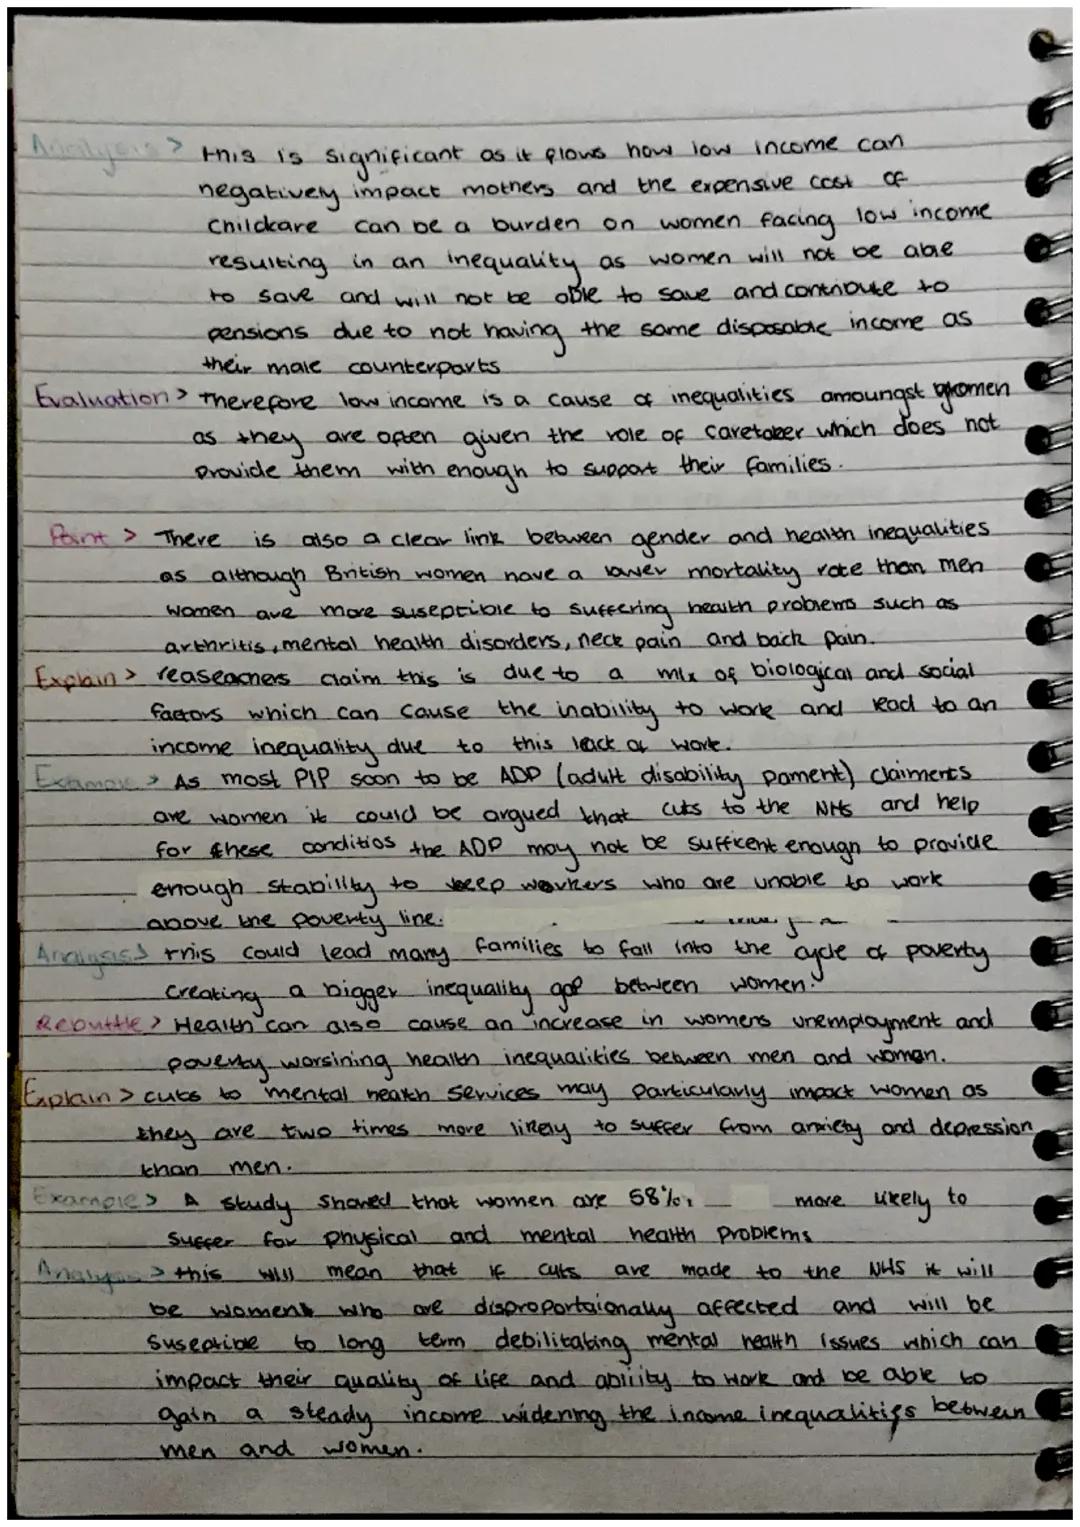 Analysis > this is significant as it flows how low income can
negatively impact mothers and the expensive cost of
Childcare can be a burden on women facing low income
resulting in an inequality as women will not be able
to save and will not be able to save and contribute to
pensions due to not having the same disposable income as
their male counterparts
Evaluation > Therefore low income is a cause of inequalities amoungst women
as they are often given the role of caretaker which does not
provide them with enough to support their families.
Point > There is also a clear link between gender and health inequalities
as although British women have a lower mortality rate than men
women are more suseptible to suffering health problems such as
arthritis, mental health disorders, neck pain and back pain.
Explain > reaseachers claim this is due to a mix of biological and social
factors which can cause the inability to work and lead to an
income inequality due to this lack of work.
Example > As most PIP soon to be ADP (adult disability pament) claiments
are women it could be argued that cuts to the NHS and help
for these conditios the ADP may not be sufficent enough to provide
enough stability to keep workers who are unable to work
above the poverty line.
Analysis > This could lead many families to fall into the cycle of poverty
creating a bigger inequality gap between women.
Rebuttle > Health can also cause an increase in womens unemployment and
poverty worsining health inequalities between men and women.
Explain > cuts to mental health services may particularly impact women as
they are two times more likely to suffer from anxiety and depression
than men.
Example > A study showed that women are 58% more likely to
suffer for physical and mental health problems
Analysis > this will mean that if cuts are made to the NHS it will
be women who are disproportaionally affected and will be
suseptible to long term debilitating mental health issues which can
impact their quality of life and ability to work and be able to
gain a steady income widening the income inequalities between
men and women.